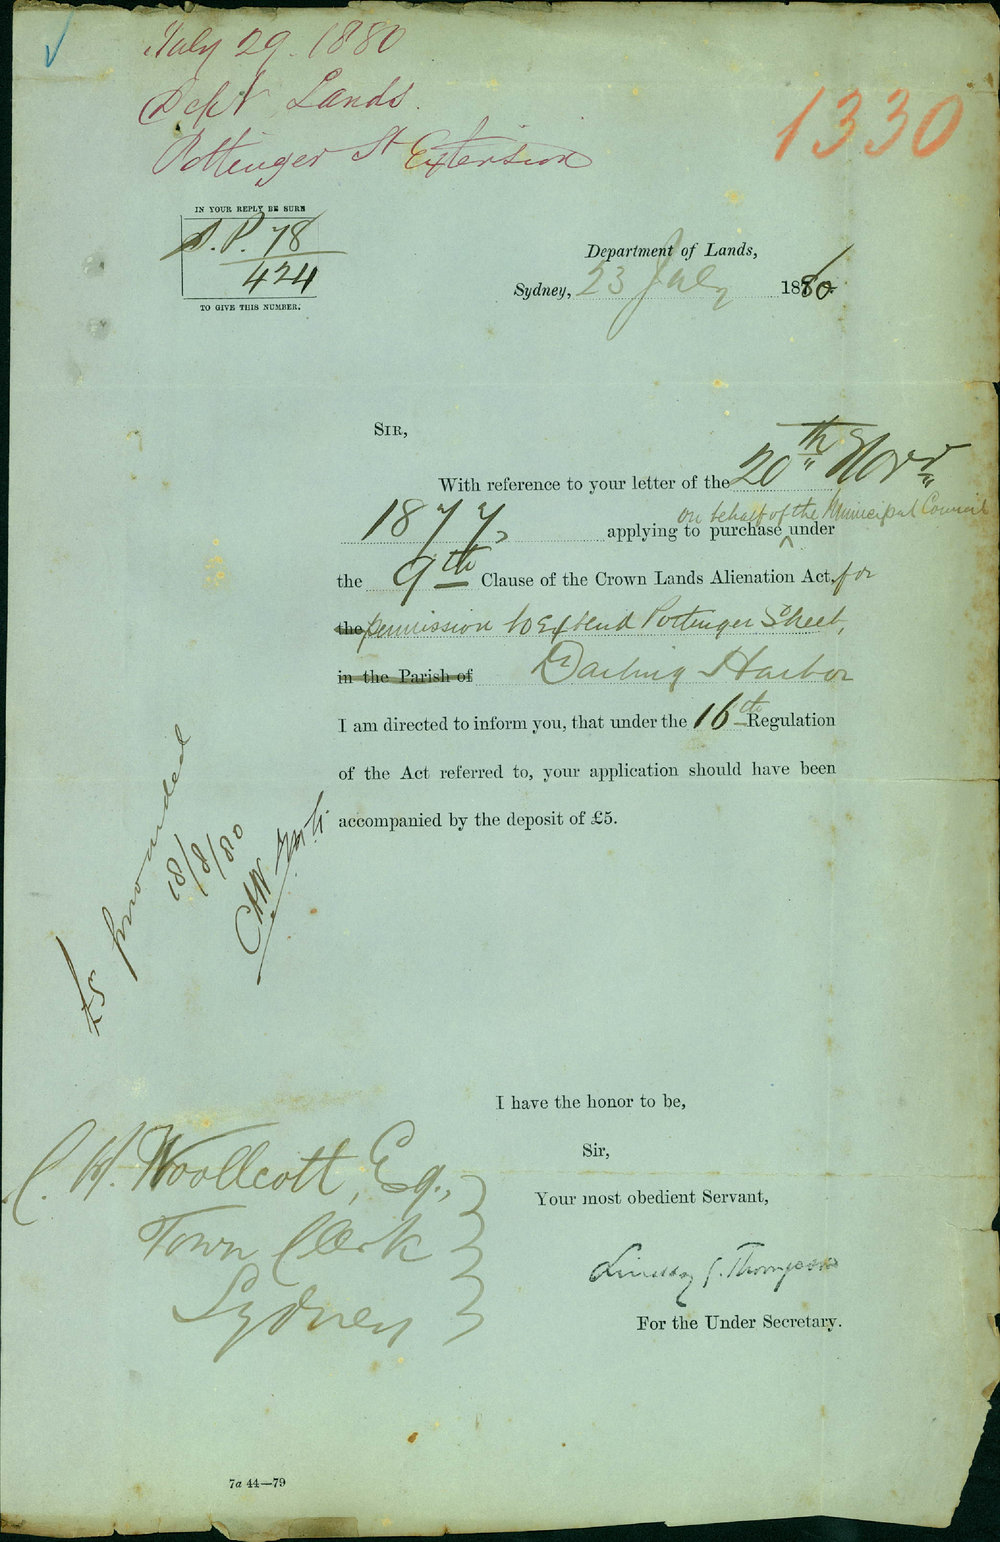 July 29. 1880
Dept Lands.
Pottinger St Extension
1330
IN YOUR REPLY BE SURE
S.P. 78
424
TO GIVE THIS NUMBER.
Department of Lands,
Sydney, 23 July 1880
SIR,
With reference to your letter of the 20th Novr
on behalf of the Municipal Council
1877, applying to purchase ^ under
the 9th Clause of the Crown Lands Alienation Act, for
the permission to Extend Pottinger Street,
in the Parish of Darling Harbor
I am directed to inform you, that under the 16th Regulation
of the Act referred to, your application should have been
accompanied by the deposit of £5.
£5 forwarded
18/8/80
CHW
I have the honor to be,
Sir,
Your most obedient Servant,
Lindsay G. Thompson
For the Under Secretary.
C. H. Woollcott, Esq.,
Town Clerk
Sydney
7a 44—79